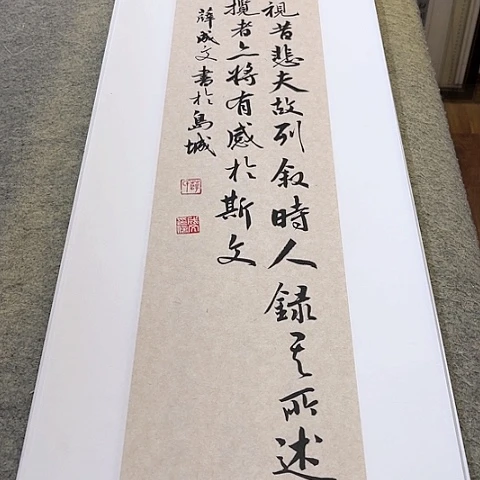 視昔悲夫故列叙時人録其所述
攬者亦將有感於斯文
薛成文書於島城